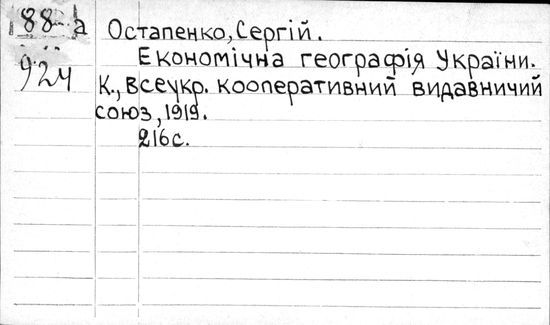 88-а
924
Остапенко, Сергій.
Економічна географія України.
К., Всеукр. кооперативний видавничий
союз, 1919.
216с.